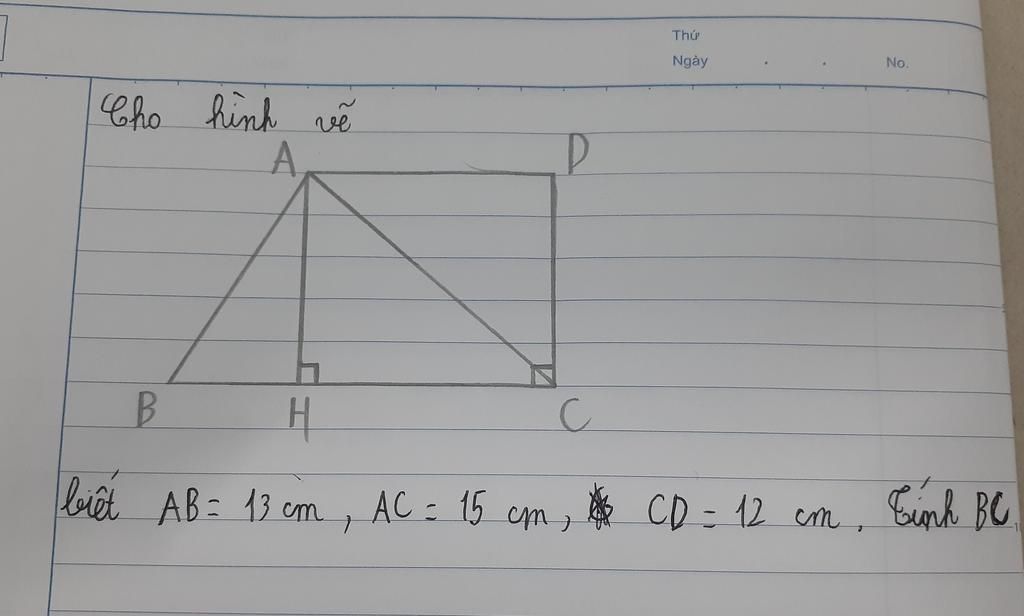 Thứ
Ngày . . No.
Cho hình vẽ
A D
B H C
biết AB = 13 cm, AC = 15 cm, CD = 12 cm. Tính BC.